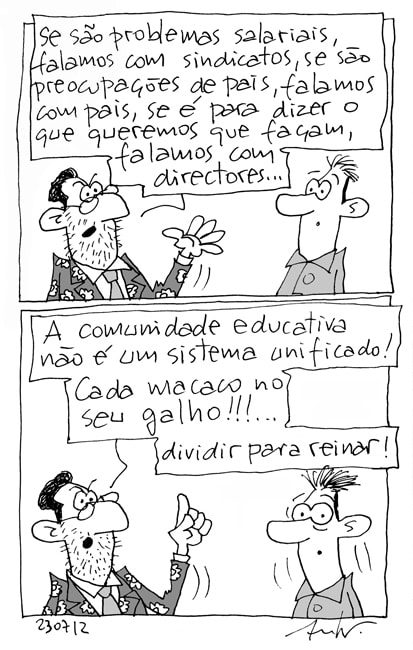 Se são problemas salariais,
falamos com sindicatos, se são
preocupações de pais, falamos
com pais, se é para dizer o
que queremos que façam,
falamos com
directores...
A comunidade educativa
não é um sistema unificado!
Cada macaco no
seu galho!!!...
dividir para reinar!
230712